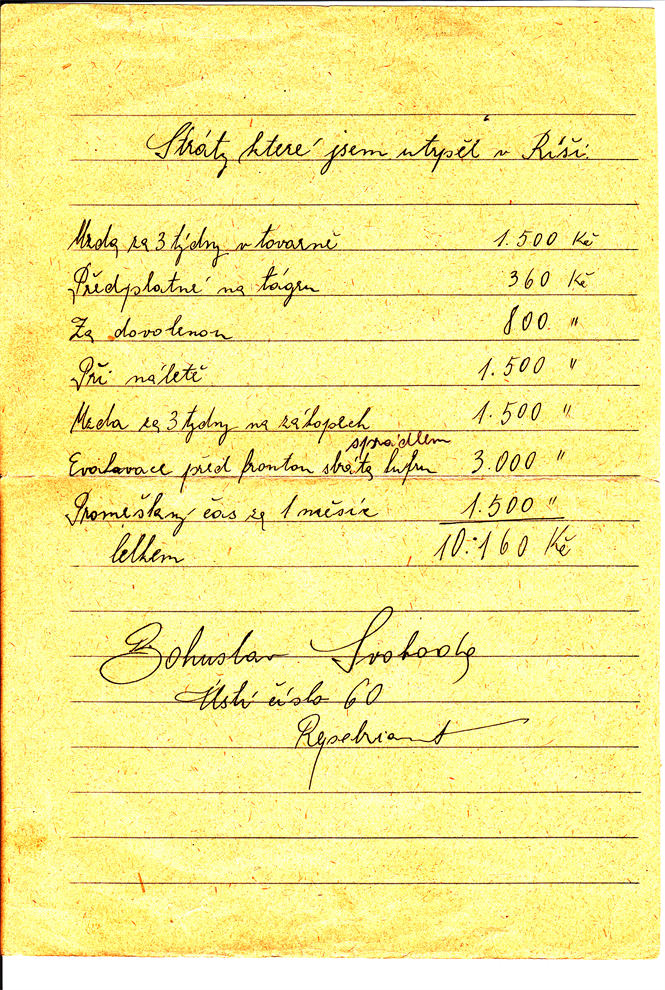 Stráty které jsem utrpěl v Ríši.
Mzda za 3 týdny v tovarně 1.500 Kč
Předplatné na lágru 360 Kč
Za dovolenou 800 "
Při náletě 1.500 "
Mzda za 3 týdny na zákopech 1.500 "
sprádlem
Evakavace před frontou stráta kufru 3.000 "
Promeškaný čas za 1 měsíc 1.500 "
Celkem 10.160 Kč
Bohuslav Svoboda
Ústí číslo 60